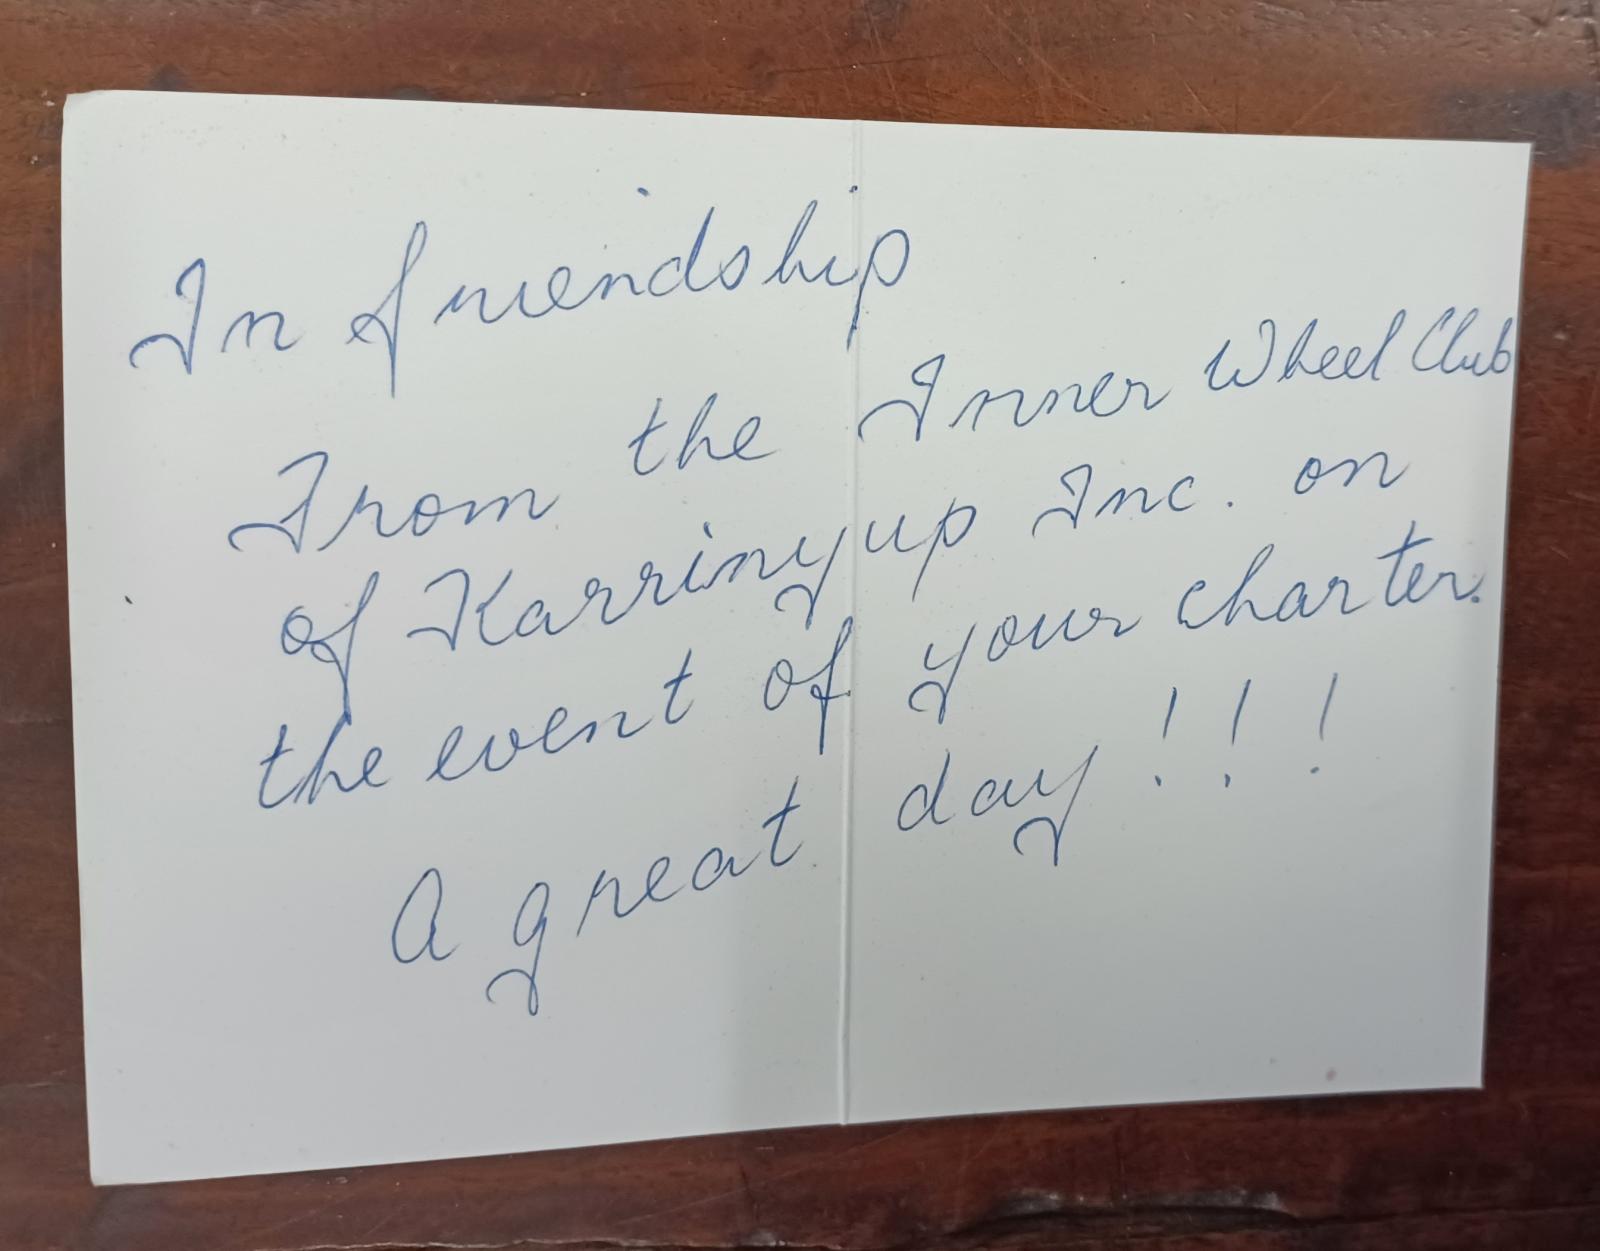 In friendship
From the Inner Wheel Club
of Karrinyup Inc. on
the event of your charter.
A great day!!!